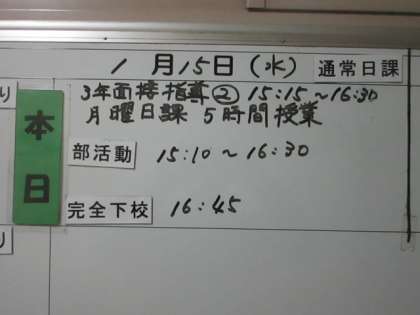 1月15日(水) 通常日課
3年面接指導② 15:15~16:30
月曜日課 5時間授業
本日
部活動 15:10~16:30
完全下校 16:45